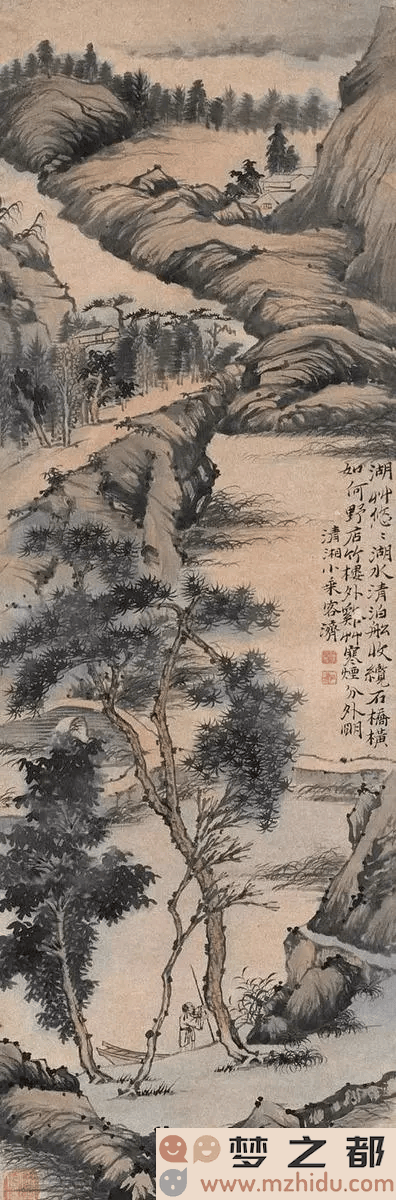 湖艸悠〻湖水清泊舩收纜石橋橫
如何野店竹樓外艸寒煙分外明
清湘小乘客濟
梦之都
www.mzhidu.com